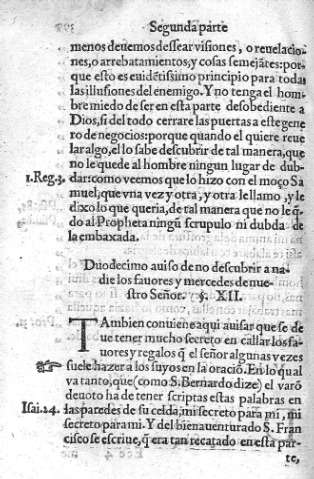 Segunda parte
menos deuemos dessear visiones, o reuelacio-
nes, o arrebatamientos, y cosas semejãtes: por-
que esto es euidẽtissimo principio para todas
las illusiones del enemigo. Y no tenga el hom-
bre miedo de ser en esta parte desobediente a
Dios, si del todo cerrare las puertas a este gene
ro de negocios: porque quando el quiere reue
lar algo, el lo sabe descubrir de tal manera, que
no le quede al hombre ningun lugar de dub-
1.Reg.3. dar: como veemos que lo hizo con el moço Sa
muel, que vna vez y otra, y otra le llamo, y le
dixo lo que queria, de tal manera que no le q̃-
do al Propheta ningũ scrupulo ni dubda de
la embaxada.
Duodecimo auiso de no descubrir a na-
die los fauores y mercedes de nue-
stro Señor. §. XII.
TAmbien contiene aqui auisar que se de
ue tener mucho secreto en callar los fa-
uores y regalos q̃ el señor algunas vezes
suele hazer a los suyos en la oraciõ. En lo qual
va tanto, que (como S. Bernardo dize) el varõ
deuoto ha de tener scriptas estas palabras en
Isai.24. las paredes de su celda, mi secreto para mi, mi
secreto para mi. Y del bienauenturado S. Fran
cisco se escriue, q̃ era tan recatado en esta par-
te,